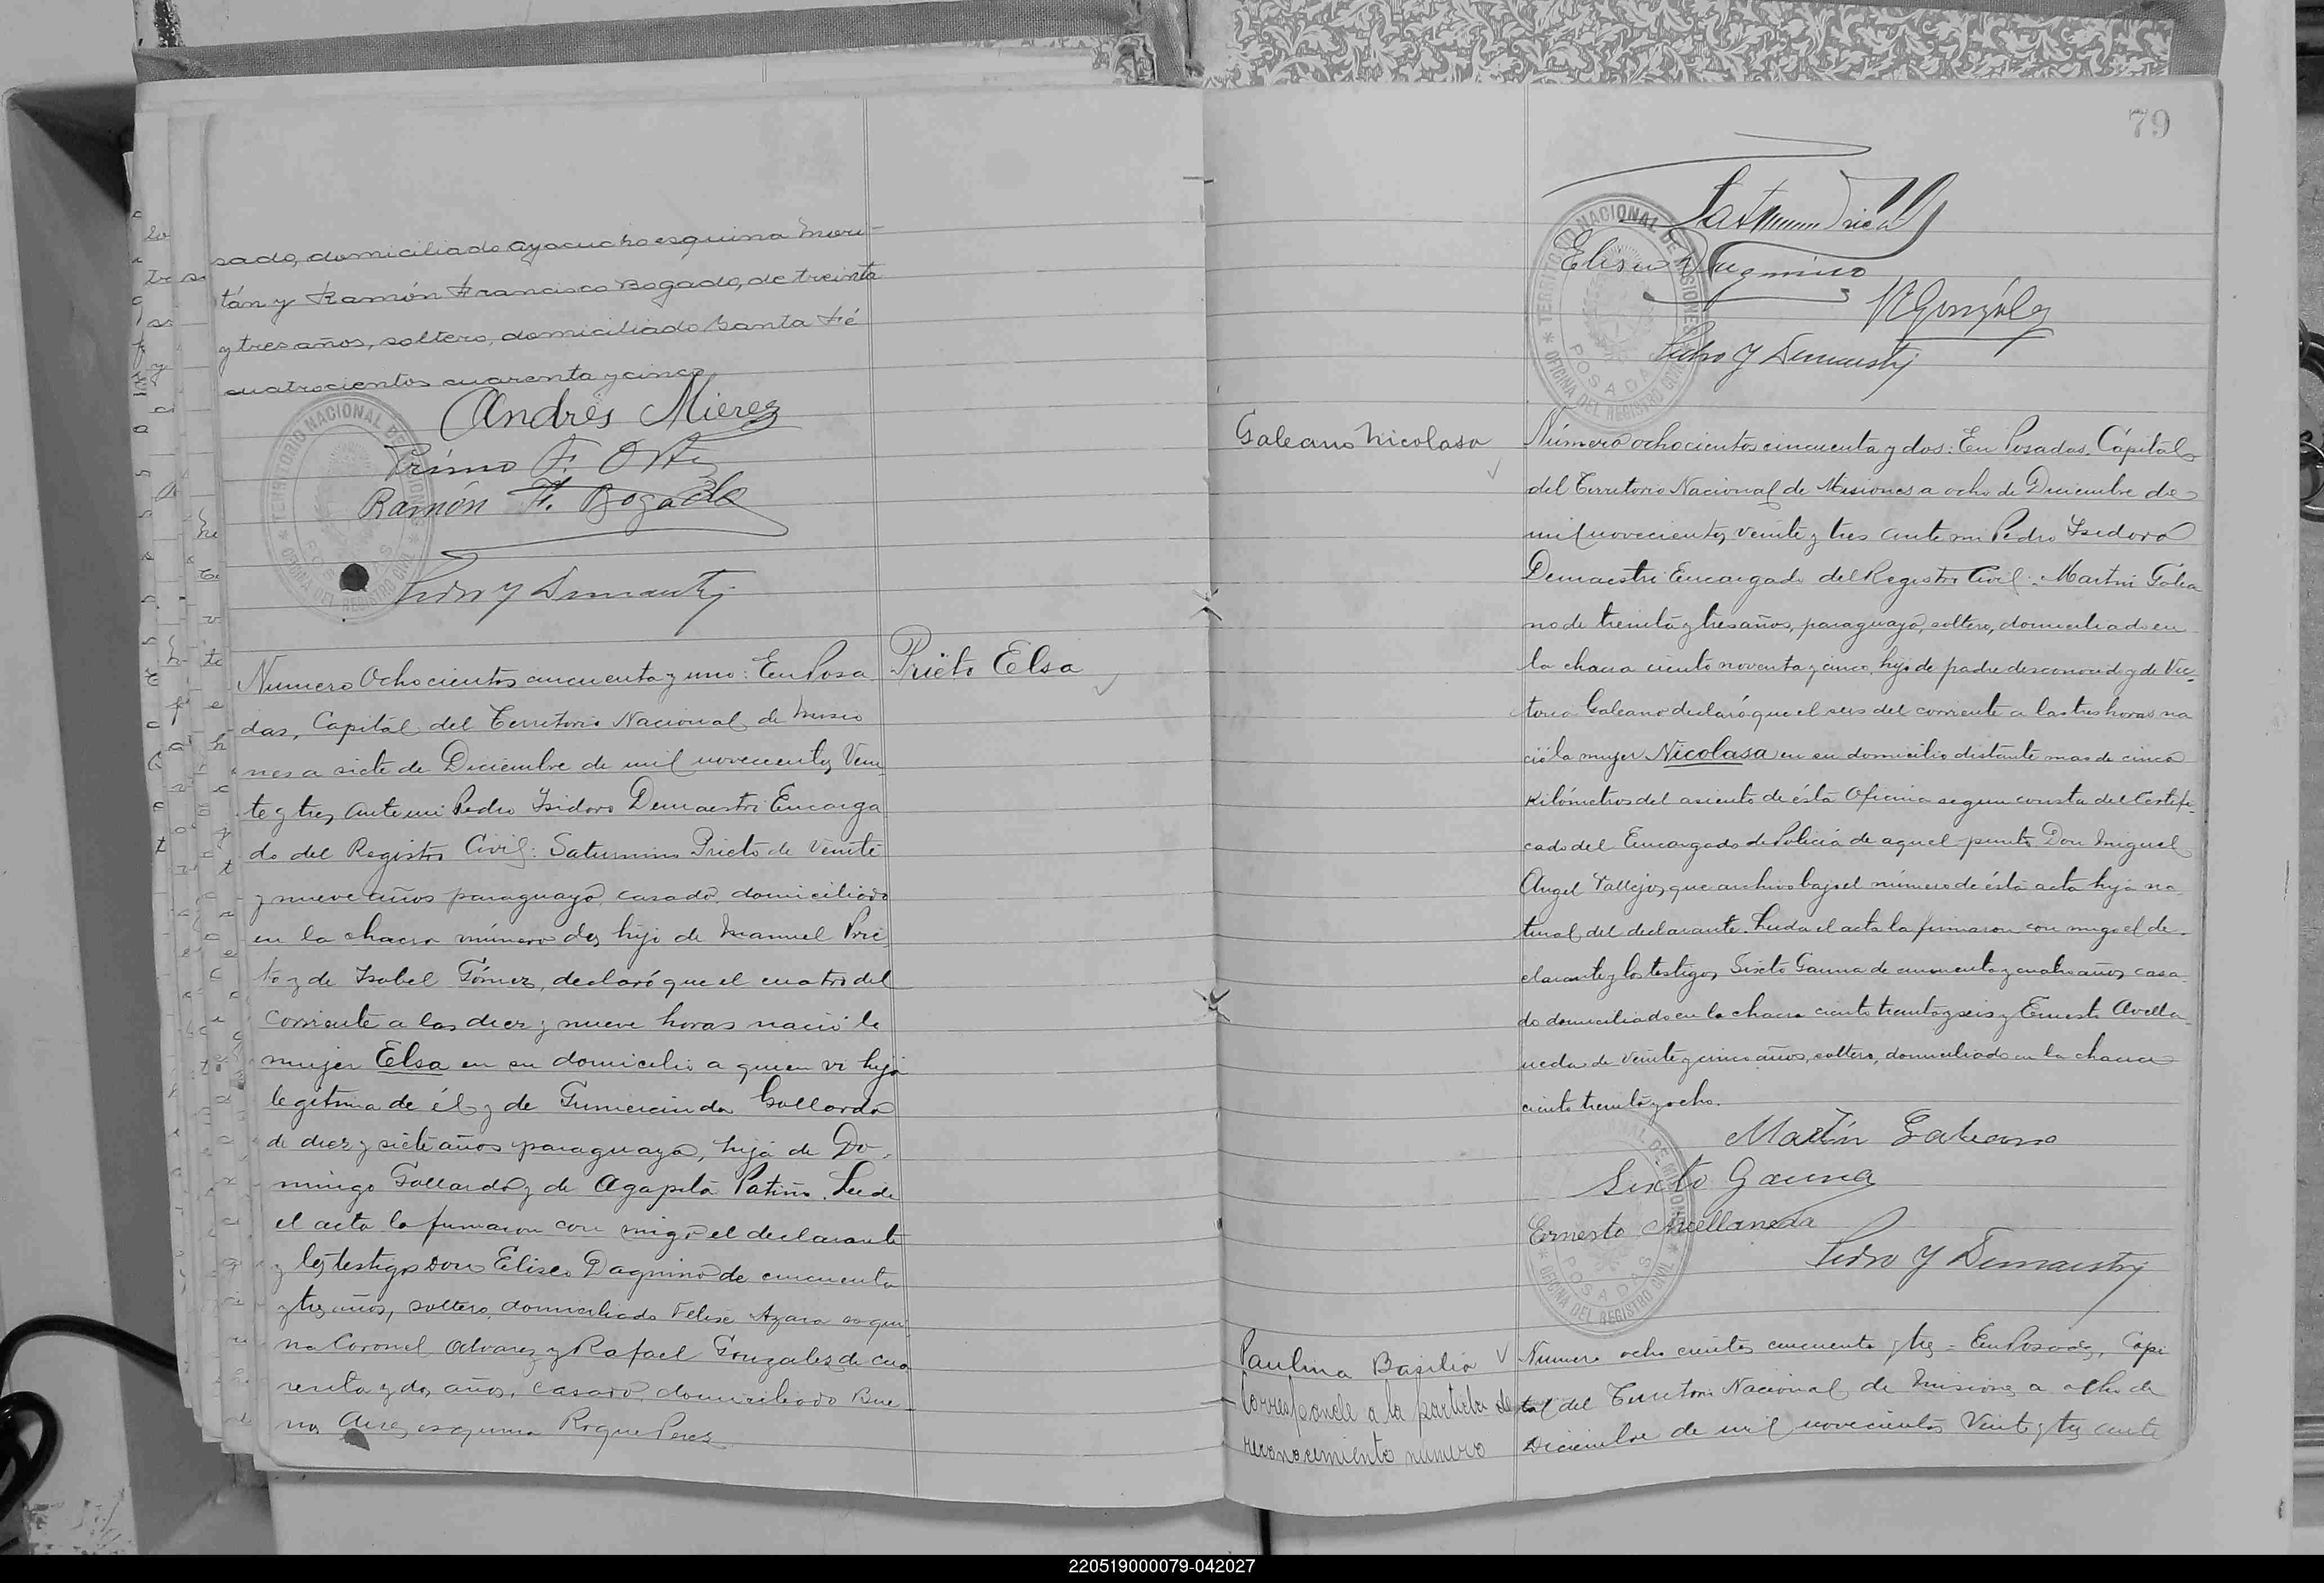 sado, domiciliado Ayacucho esquina Mori-
tán y Ramón Francisco Bogado, de treinta
y tres años, soltero, domiciliado Santa Fé
cuatrocientos cuarenta y cinco
Andrés Mierez
Primo F. Ortiz
Ramón F. Bogado
Pedro Y Demaestri
TERRITORIO NACIONAL DE MISIONES
OFICINA DEL REGISTRO CIVIL
POSADAS
Prieto Elsa
Numero Ochocientos cincuenta y uno: En Posa
das, Capital del Territorio Nacional de Misio
nes a siete de Diciembre de mil novecientos Vein
te y tres ante mi Pedro Isidoro Demaestri Encarga
do del Registro Civil: Saturnino Prieto de veinte
y nueve años paraguayo, casado, domiciliado
en la chacra número dos hijo de Manuel Prie
to y de Isabel Gómez, declaró que el cuatro del
corriente a las diez y nueve horas nació la
mujer Elsa en su domicilio a quien vi hija
legitima de él y de Gumercinda Gallardo
de diez y siete años paraguaya, hija de Do
mingo Gallardo y de Agapita Patiño. Leida
el acta la firmaron con migo el declarante
y los testigos Don Eliseo Dagnino de cincuenta
y tres años, soltero, domiciliado Felix Azara esqui
na Coronel Alvarez y Rafael Gonzalez de cua
renta y dos años, casado, domiciliado Bue
nos Aires esquina Roque Perez
79
Eliseo Dagnino
R Gonzálex
Pedro Y Demaestri
TERRITORIO NACIONAL DE MISIONES
OFICINA DEL REGISTRO CIVIL
POSADAS
Galeano Nicolasa
Número ochocientos cincuenta y dos: En Posadas, Capital
del Territorio Nacional de Misiones a ocho de Diciembre de
mil novecientos veinte y tres ante mi Pedro Isidoro
Demaestri Encargado del Registro Civil: Martin Galea
no de treinta y tres años, paraguayo, soltero, domiciliado en
la chacra ciento noventa y cinco, hijo de padre desconocido y de Vic
toria Galeano declaró que el seis del corriente a las tres horas na
ció la mujer Nicolasa en su domicilio distante mas de cinco
Kilómetros del asiento de ésta Oficina segun consta del Certifi
cado del Encargado de Policia de aquel punto Don Miguel
Angel Vallejos que archivo bajo el número de ésta acta hija na
tural del declarante. Leida el acta la firmaron con migo el de
clarante y los testigos Sixto Gauna de cincuenta y cuatro años, casa
do domiciliado en la chacra ciento treinta y seis y Ernesto Avella
neda de veinte y cinco años, soltero, domiciliado en la chacra
ciento treinta y ocho.
Martín Galeano
Sixto Gauna
Ernesto Avellaneda
Pedro Y Demaestri
OFICINA DEL REGISTRO CIVIL
POSADAS
Paulina Basilia
Corresponde a la partida de
reconocimiento número
Numero ocho cientos cincuenta y tres - En Posadas, Capi
tal del Territorio Nacional de Misiones a ocho de
Diciembre de mil novecientos Veinte y tres ante
220519000079-042027